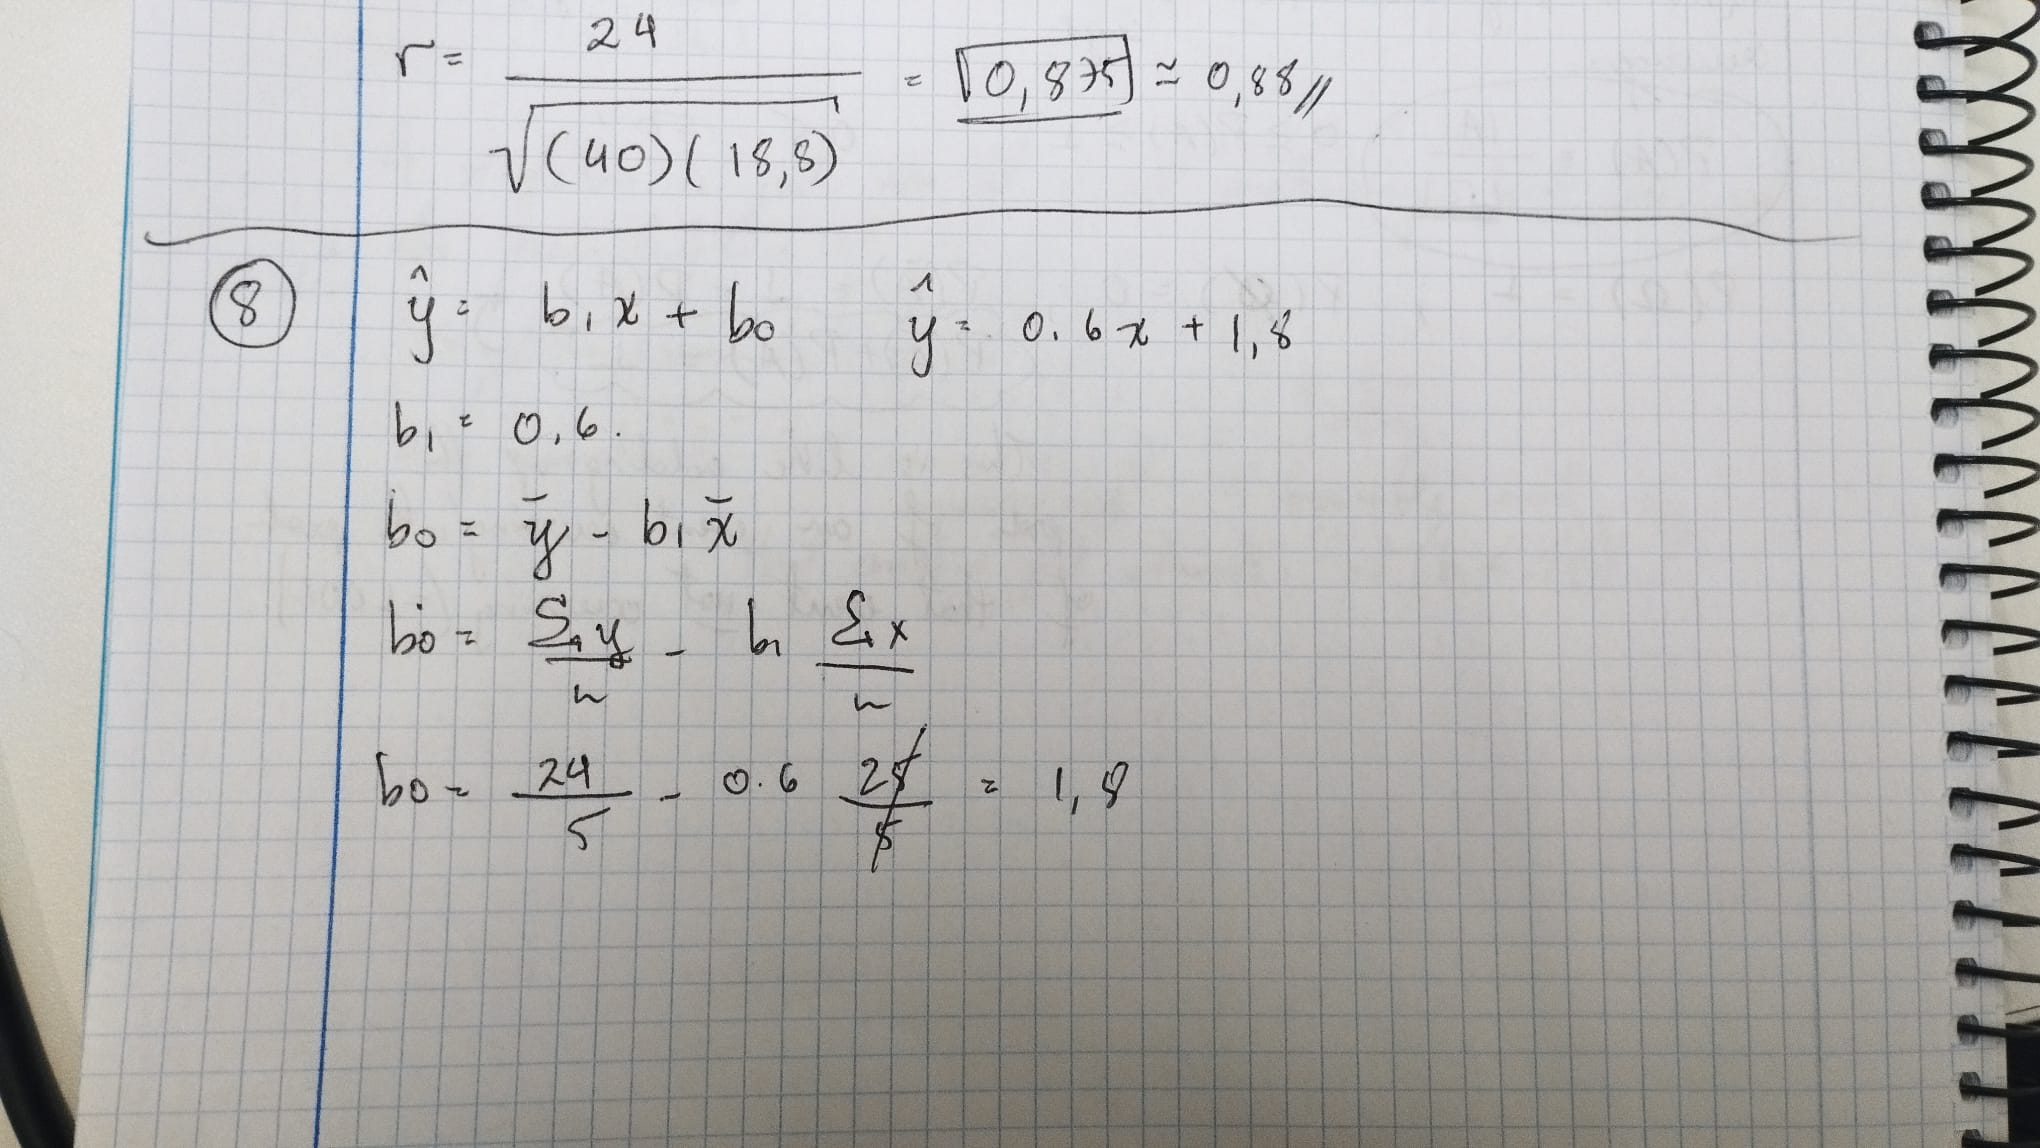 r = 24 / √(40)(18,8) = 0,875 ≃ 0,88 //
⑧ ŷ = b₁x + b₀ ŷ = 0.6x + 1,8
b₁ = 0,6.
b₀ = ȳ - b₁x̄
b₀ = Σy / n - b₁ Σx / n
b₀ = 24 / 5 - 0.6 25 / 5 = 1,8